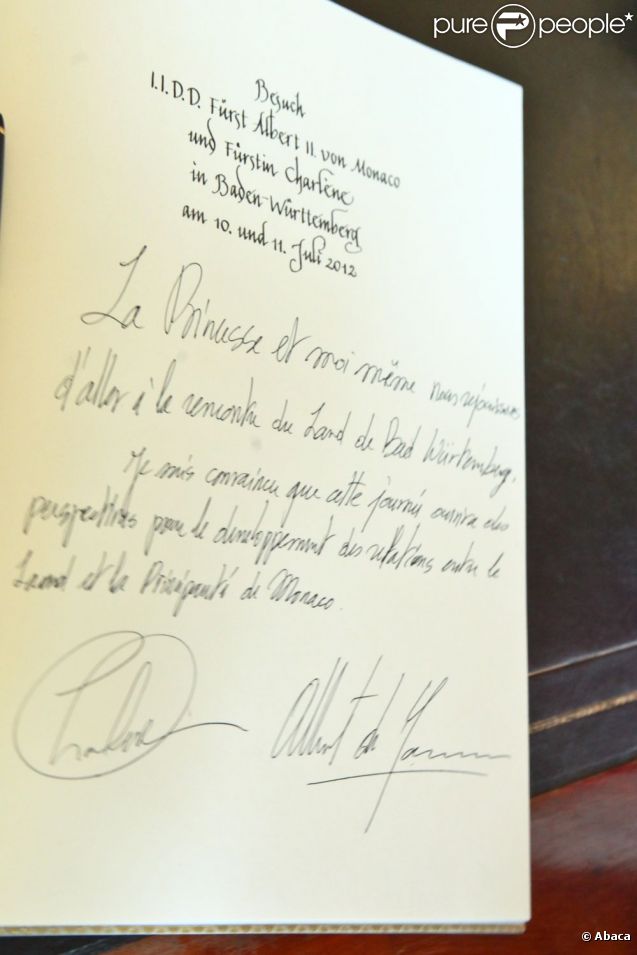 pure people
Besuch
I.I.D.D. Fürst Albert II. von Monaco
und Fürstin Charlène
in Baden-Württemberg
am 10. und 11. Juli 2012
La Princesse et moi même nous réjouissons
d'aller à la rencontre du Land de Bad Würtemberg.
Je suis convaincu que cette journée ouvrira des
perspectives pour le développement des relations entre le
Land et la Principauté de Monaco.
Albert de Monaco
© Abaca